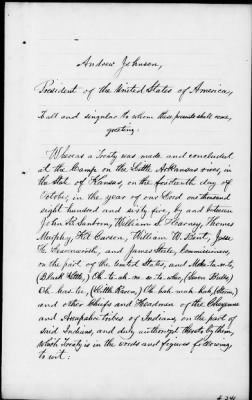 Andrew Johnson,
President of the United States of America,
To all and singular to whom these presents shall come,
greeting:
Whereas a Treaty was made and concluded
at the Camp on the Little Arkansas river, in
the State of Kansas, on the fourteenth day of
October, in the year of our Lord one thousand
eight hundred and sixty five, by and between
John B. Sanborn, William S. Harney, Thomas
Murphy, Kit Carson, William W. Bent, Jesse
H. Leavenworth, and James Steele, Commissioners,
on the part of the United States, and
(Black Kettle,) (Seven Bulls,)
(Little Raven,) (Storm,)
and other Chiefs and Headmen of the Cheyenne
and Arrapahoe tribes of Indians, on the part of
said Indians, and duly authorized thereto by them,
which Treaty is in the words and figures following,
to wit: